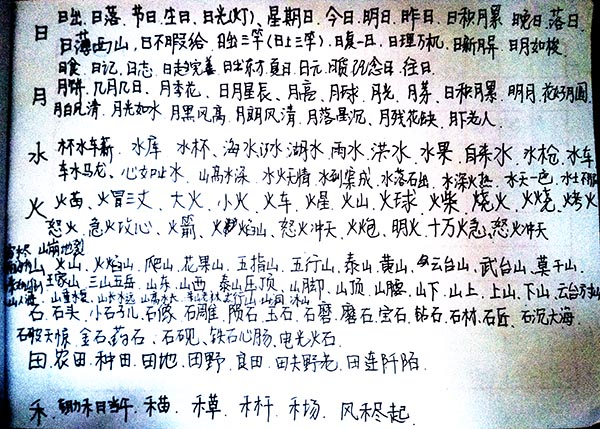 日 日出、日落、节日、生日、日光(灯)、星期日、今日、明日、昨日、日积月累 晚日、落日
日薄西山、日不暇给 日出三竿(日上三竿)、日复一日、日理万机、日新月异 日月如梭
日食、日记、日志、日趋完善 日出东方 夏日、日元 纪念日、往日
月 月饼、几月几日、月季花、日月星长、月亮、月球、月光、月芽、日积月累、明月、花好月圆
月白风清、月光如水、月黑风高、月朗风清、月落星沉、月残花缺、月下老人
水 杯水车薪、水库、水杯、海水 湖水 雨水、洪水、水果、自来水、水枪、水车
车水马龙、心如止水、山高水深、水火无情、水到渠成、水落石出、水深火热、水天一色、
火 火苗、火冒三丈、大火、小火、火车、火星、火山、火球、火柴、烧火、火烧、烤火
怒火、急火攻心、火箭、火焰山、怒火冲天、火炮、明火、十万火急、怒火冲天
山崩地裂
山、火山、火焰山、爬山、花果山、五指山、五行山、泰山、黄山、云台山、武台山、莫干山、
王屋山、三山五岳、山东、山西、泰山压顶、山脚、山顶、山腰、山下、山上、上山、下山、云台
石 石头、小石子儿、石像、石雕、陨石、玉石、石磨、磨石、宝石、钻石、石材、石匠、石沉大海、
石破天惊、金石、药石、石砚、铁石心肠、电光火石
田、农田、种田、田地、田野、良田、田夫野老、田连阡陌、
禾 锄禾日当午、禾苗、禾草、禾杆、禾场、风禾尽起、